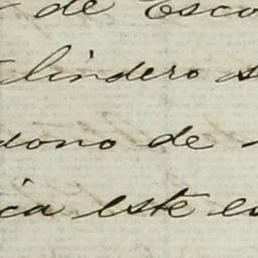 de Esco
lindero s
dono de
ca este es